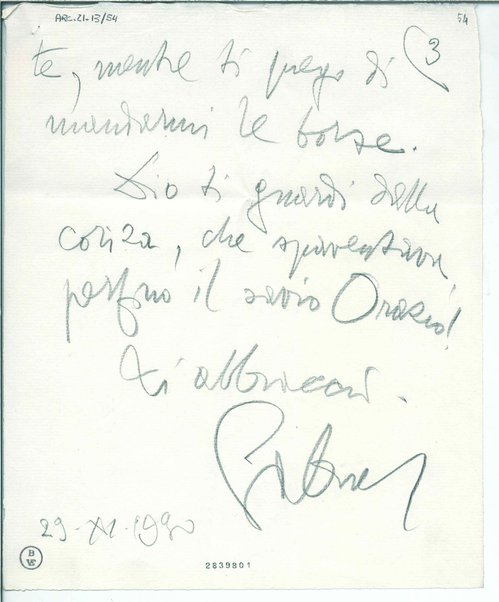 ARC.21-13/54
54
3
te, mentre ti prego di
mandarmi le borse.
Dio ti guardi dalla
coriza, che spaventava
perfino il savio Orazio!
Ti abbraccio.
29-XI-1930
2839801